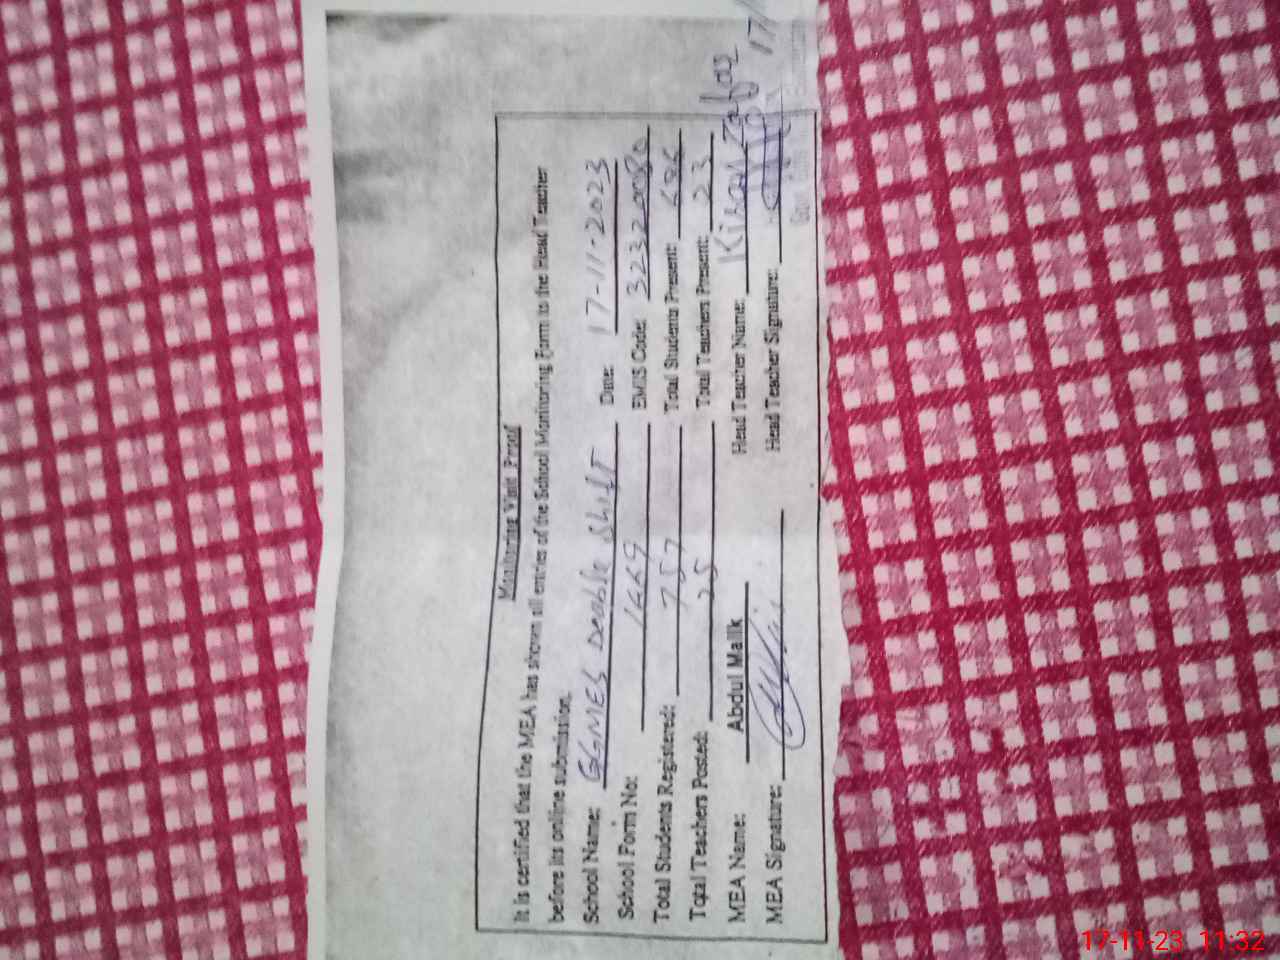 Monitoring Visit Proof
It is certified that the MEA has shown all entries of the School Monitoring Form to the Head Teacher
before its online submission.
School Name: GGMES Double Shift Date: 17-11-2023
School Form No: 1669 EMIS Code: 32320080
Total Students Registered: 757 Total Students Present: 686
Total Teachers Posted: 25 Total Teachers Present: 23
MEA Name: Abdul Malik Head Teacher Name: Kiran Zafar
MEA Signature: Head Teacher Signature: 17/
17-11-23 11:32